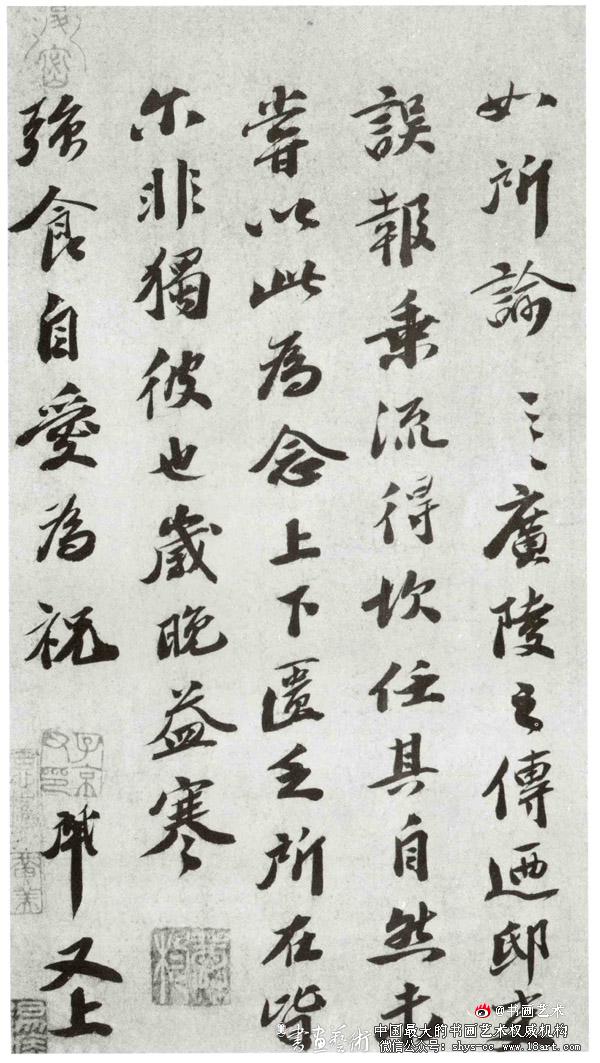 如所諭廣陵之傳迺邸吏
誤報乗流得坎任其自然未
嘗以此為念上下匱乏所在皆
尔非獨彼也歲晚益寒
強食自愛為祝
軾又上
子京父印
書畫藝術
书画艺术
中国最大的书画艺术权威机构
微信公众号：shys-cc www.18art.com